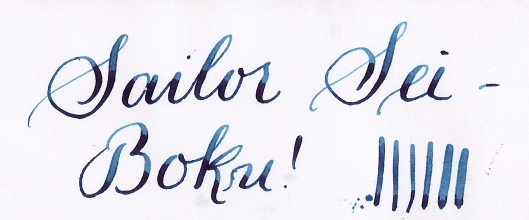 Sailor Sei-
Boku!